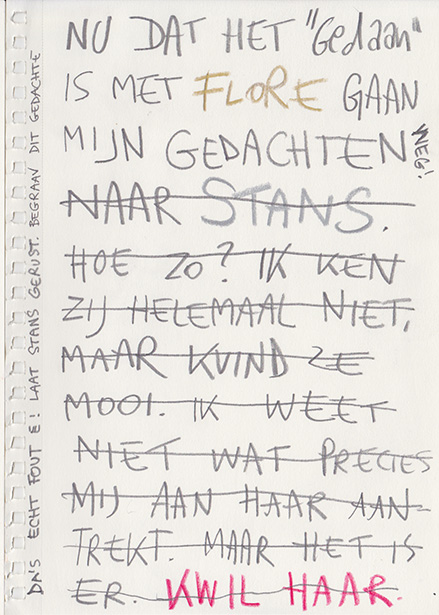 NU DAT HET "Gedaan"
IS MET FLORE GAAN
MIJN GEDACHTEN WEG!
NAAR STANS.
HOE ZO? IK KEN
ZIJ HELEMAAL NIET.
MAAR KVIND ZE
MOOI. IK WEET
NIET WAT PRECIES
MIJ AAN HAAR AAN-
TREKT. MAAR HET IS
ER. KWIL HAAR.
DA'S ECHT FOUT E! LAAT STANS GERUST. BEGRAAV DIT GEDACHTE